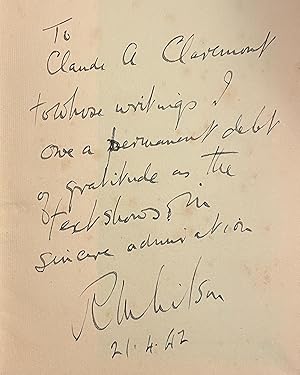 To
Claude A Claremont
to whose writings I
owe a permanent debt
of gratitude as the
text shows: in
sincere admiration
21.4.42